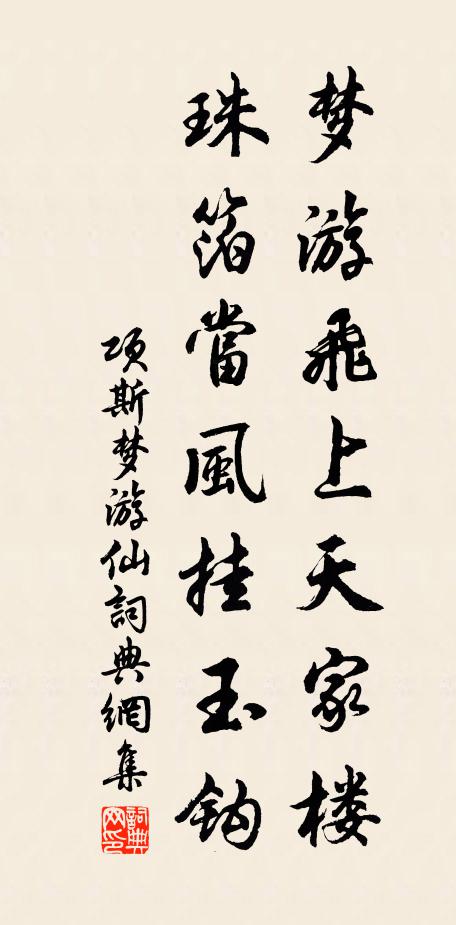 梦游飛上天家楼
珠箔當風挂玉鈎
项斯梦游仙詞典網集
詞典网印